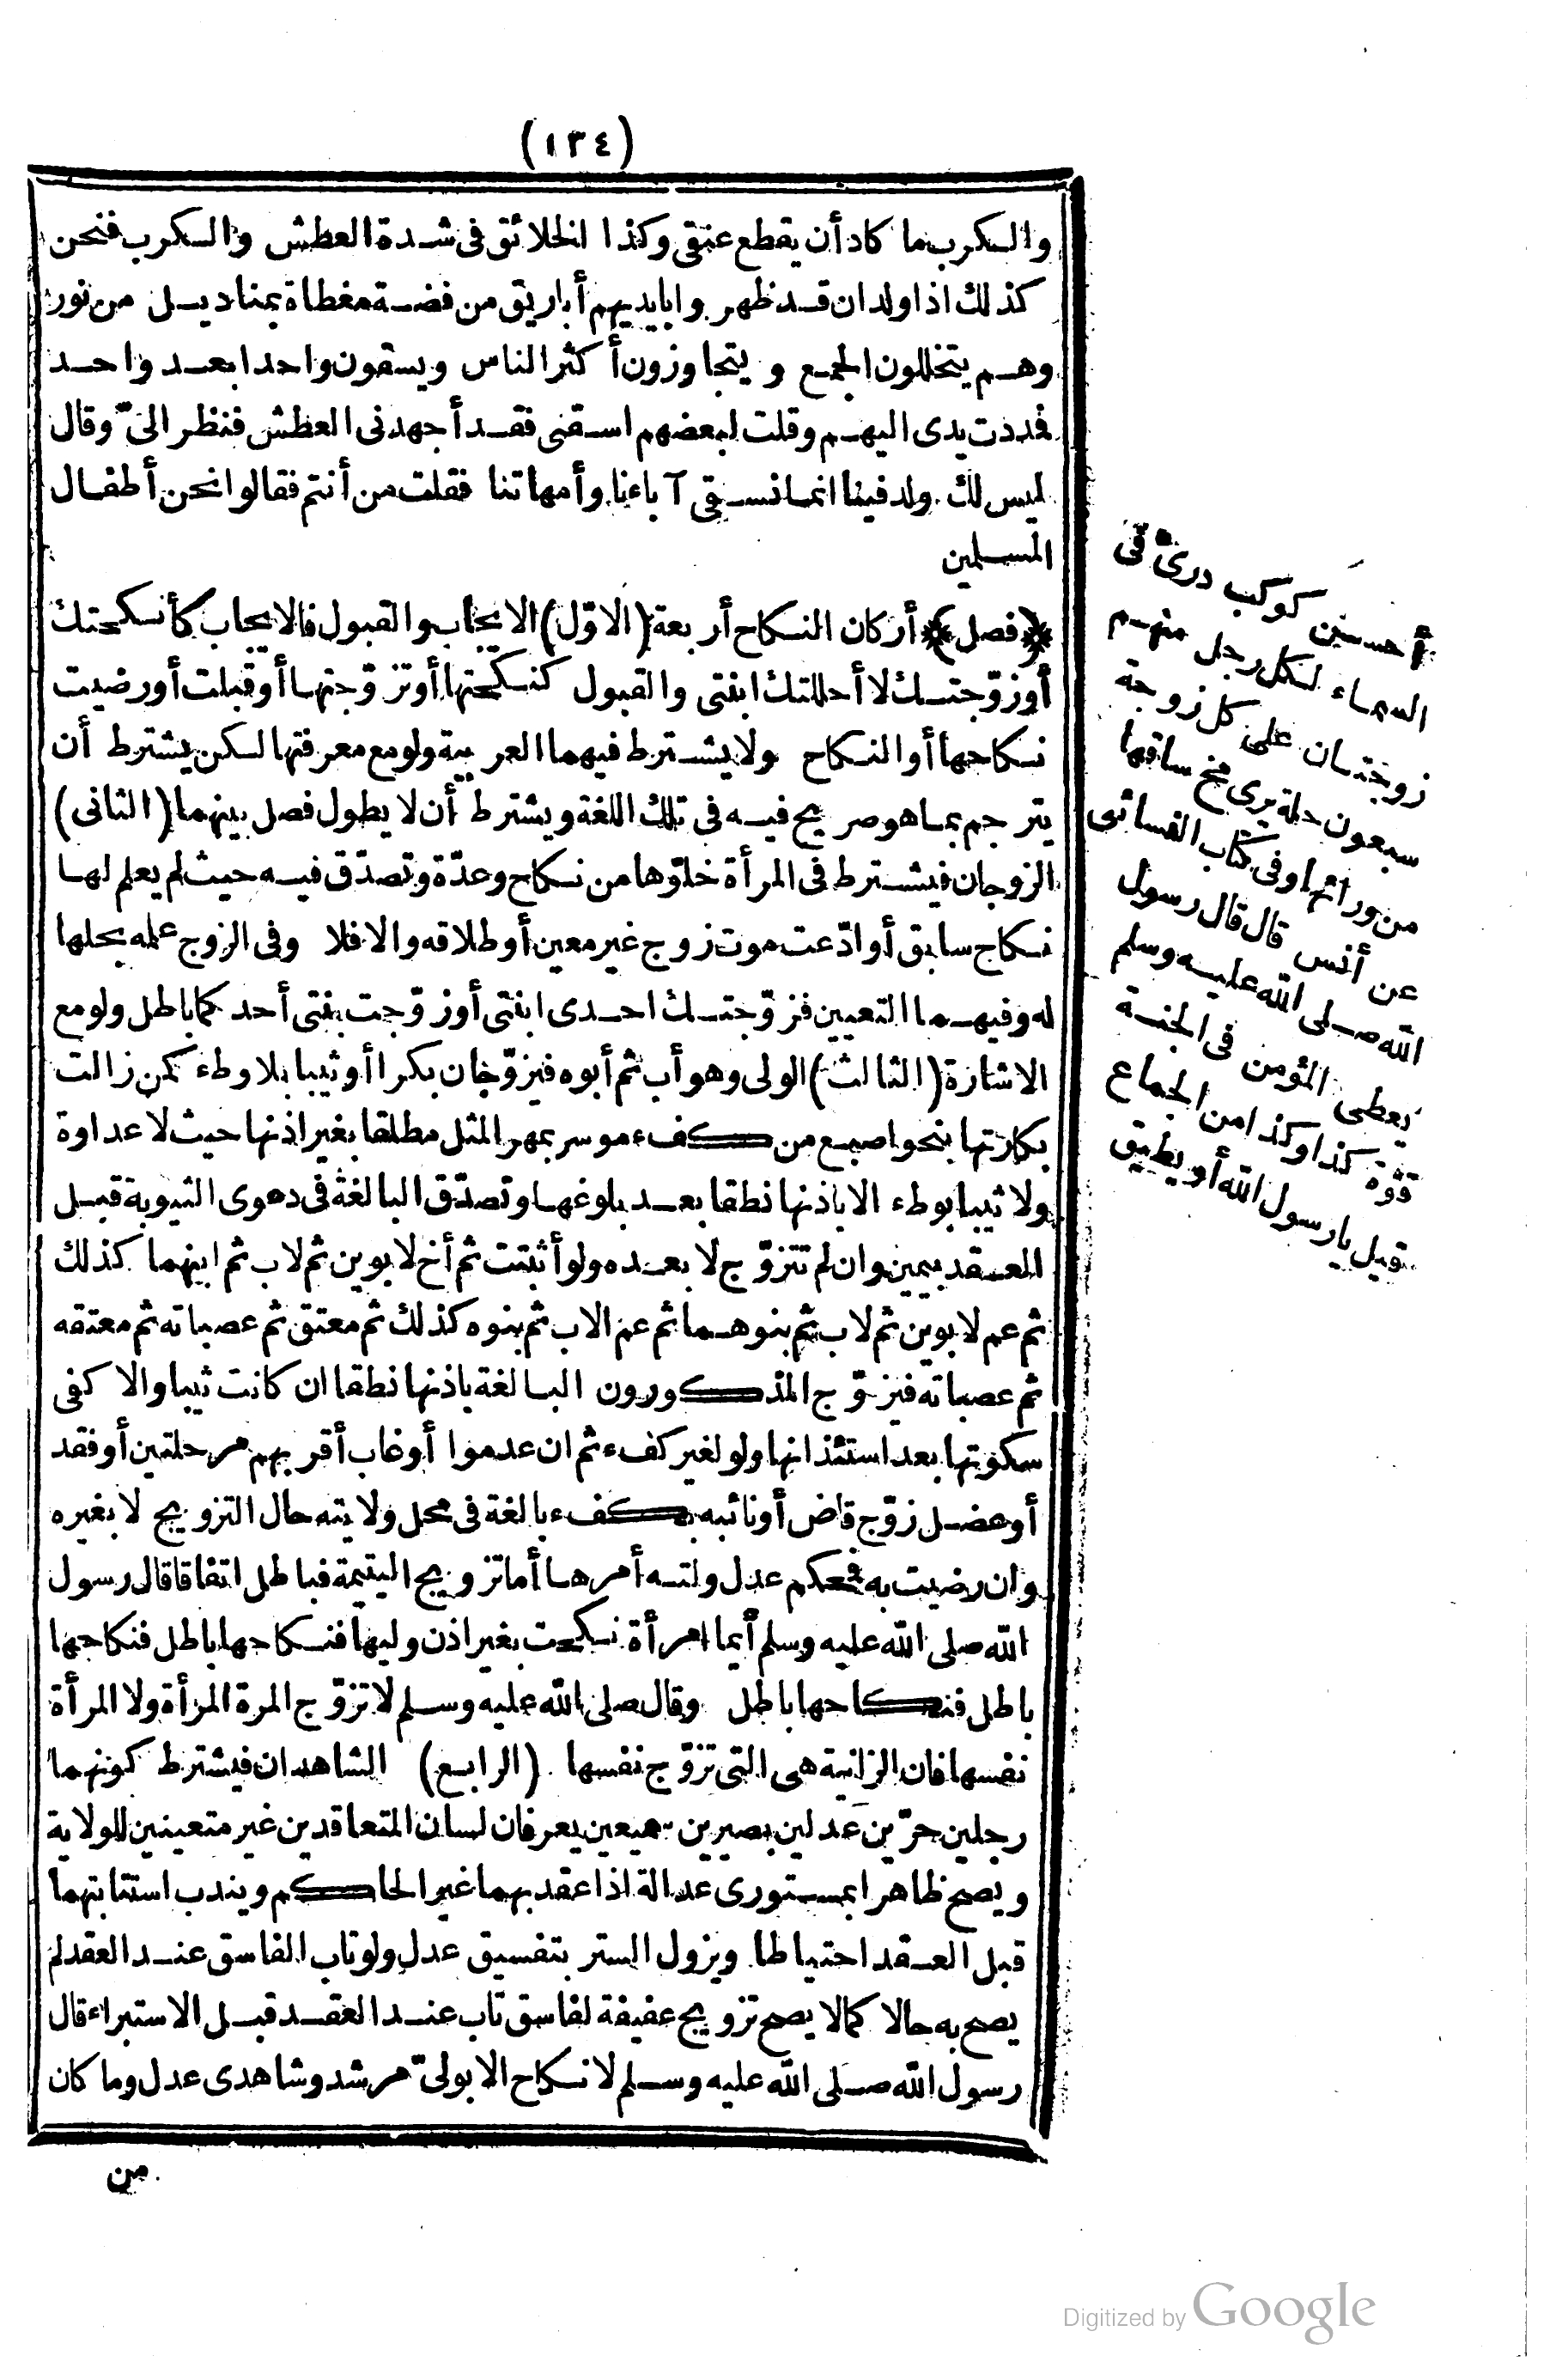 (١٣٤)
والكرب ما كاد أن يقطع عنقى وكذا الخلائق فى شدة العطش والكرب فنحن
كذلك اذا ولدان قد ظهروا بأيديهم أباريق من فضة مغطاة بمناديل من نور
وهم يتخللون الجمع ويتجاوزون أكثر الناس ويسقون واحدا بعد واحد
فمددت يدى اليهم وقلت لبعضهم اسقنى فقد أجهدنى العطش فنظر الىّ وقال
ليس لك ولد فينا انما نسقى آباءنا وأمهاتنا فقلت من أنتم فقالوا نحن أطفال
المسلمين
﴿فصل﴾ أركان النكاح أربعة (الاوّل) الايجاب والقبول فالايجاب كأنكحتك
أو زوّجتك لا أحللتك ابنتى والقبول كنكحتها أو تزوّجتها أو قبلت أو رضيت
نكاحها أو النكاح ولا يشترط فيهما العربية ولو مع معرفتها لكن يشترط أن
يترجم بما هو صريح فيه فى تلك اللغة ويشترط أن لا يطول فصل بينهما (الثانى)
الزوجان فيشترط فى المرأة خلوّها من نكاح وعدّة وتصدّق فيه حيث لم يعلم لها
نكاح سابق أو ادّعت موت زوج غير معين أو طلاقه والا فلا وفى الزوج علمه بحلها
له وفيهما التعيين فزوّجتك احدى ابنتى أو زوّجت بنتى أحدكما باطل ولو مع
الاشارة (الثالث) الولى وهو أب ثم أبوه فيزوّجان بكرا أو ثيبا بلا وطء كمن زالت
بكارتها بنحو اصبع من كفء موسر بمهر المثل مطلقا بغير اذنها حيث لا عداوة
ولا ثيبا بوطء الا باذنها نطقا بعد بلوغها وتصدّق البالغة فى دعوى الثيوبة قبل
العقد بيمين وان لم تتزوّج لا بعده ولو أثبتت ثم أخ لابوين ثم لاب ثم ابنهما كذلك
ثم عم لابوين ثم لاب ثم بنوهما ثم عم الاب ثم بنوه كذلك ثم معتق ثم عصباته ثم معتقه
ثم عصباته فيزوّج المذكورون البالغة باذنها نطقا ان كانت ثيبا والا كفى
سكوتها بعد استئذانها ولو لغير كفء ثم ان عدموا أو غاب أقربهم مرحلتين أو فقد
أو عضل زوّج قاض أو نائبه بكفء بالغة فى محل ولايته حال التزويج لا بغيره
وان رضيت به فمحكم عدل ولته أمرها أما تزويج اليتيمة فباطل اتفاقا قال رسول
الله صلى الله عليه وسلم أيما امرأة نكحت بغير اذن وليها فنكاحها باطل فنكاحها
باطل فنكاحها باطل وقال صلى الله عليه وسلم لا تزوّج المرة المرأة ولا المرأة
نفسها فان الزانية هى التى تزوّج نفسها (الرابع) الشاهدان فيشترط كونهما
رجلين حرّين عدلين بصيرين سميعين يعرفان لسان المتعاقدين غير متعينين للولاية
ويصح ظاهرا بمستورى عدالة اذا عقد بهما غير الحاكم ويندب استتابتهما
قبل العقد احتياطا ويزول الستر بتفسيق عدل ولو تاب الفاسق عند العقد لم
يصح به حالا كما لا يصح تزويج عفيفة لفاسق تاب عند العقد قبل الاستبراء قال
رسول الله صلى الله عليه وسلم لا نكاح الا بولىّ مرشد وشاهدى عدل وما كان
من
أحسن كوكب درىّ فى
السماء لكل رجل منهم
زوجتان على كل زوجة
سبعون حلة يرى مخ ساقها
من ورائها وفى كتاب النسائى
عن أنس قال قال رسول
الله صلى الله عليه وسلم
يعطى المؤمن فى الجنة
قوّة كذا وكذا من الجماع
قيل يا رسول الله أو يطيق
Digitized by Google